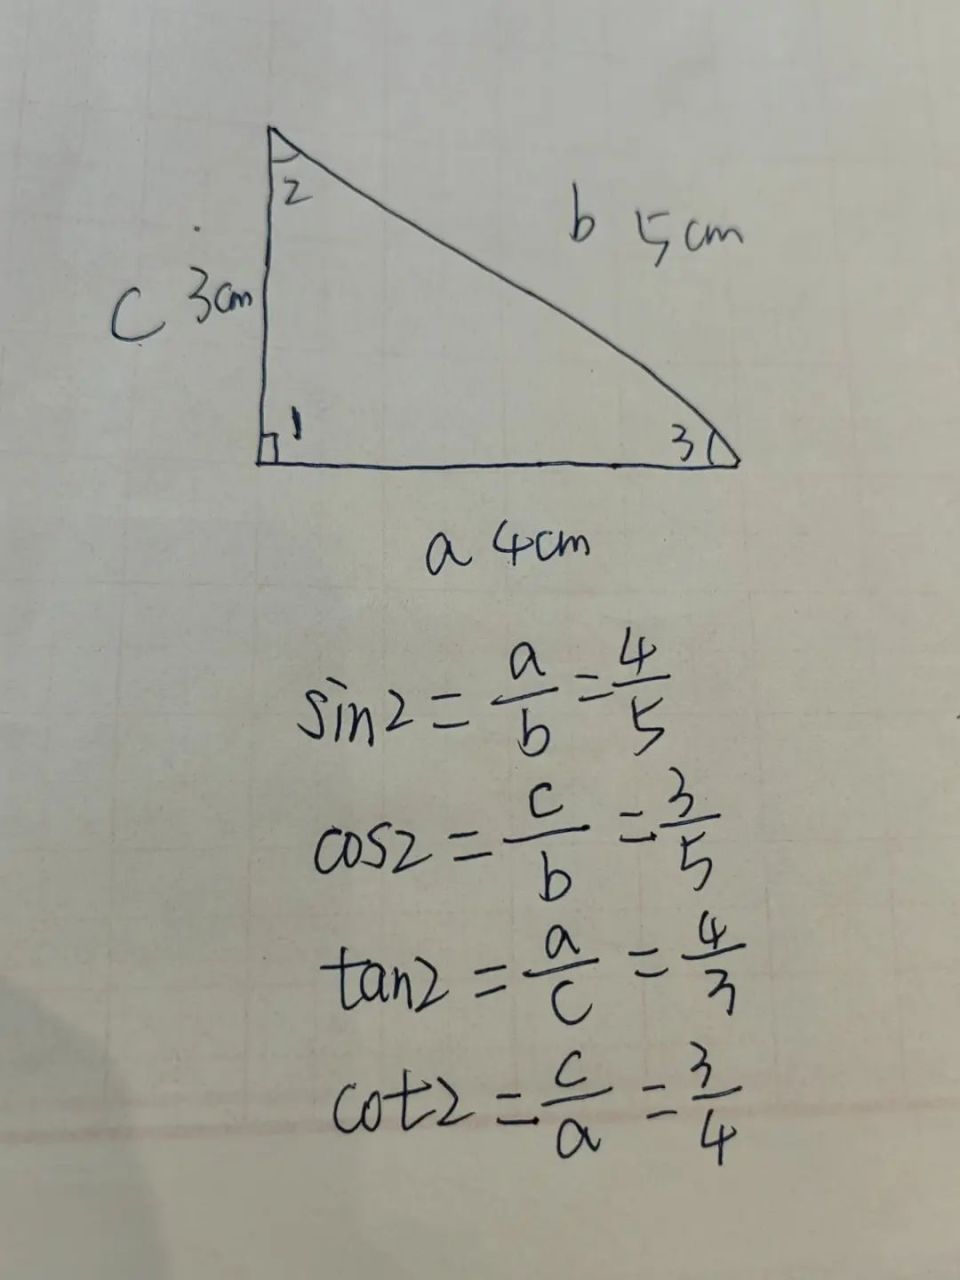 2
b 5cm
c 3cm
1
3
a 4cm
sin2 = a/b = 4/5
cos2 = c/b = 3/5
tan2 = a/c = 4/3
cot2 = c/a = 3/4